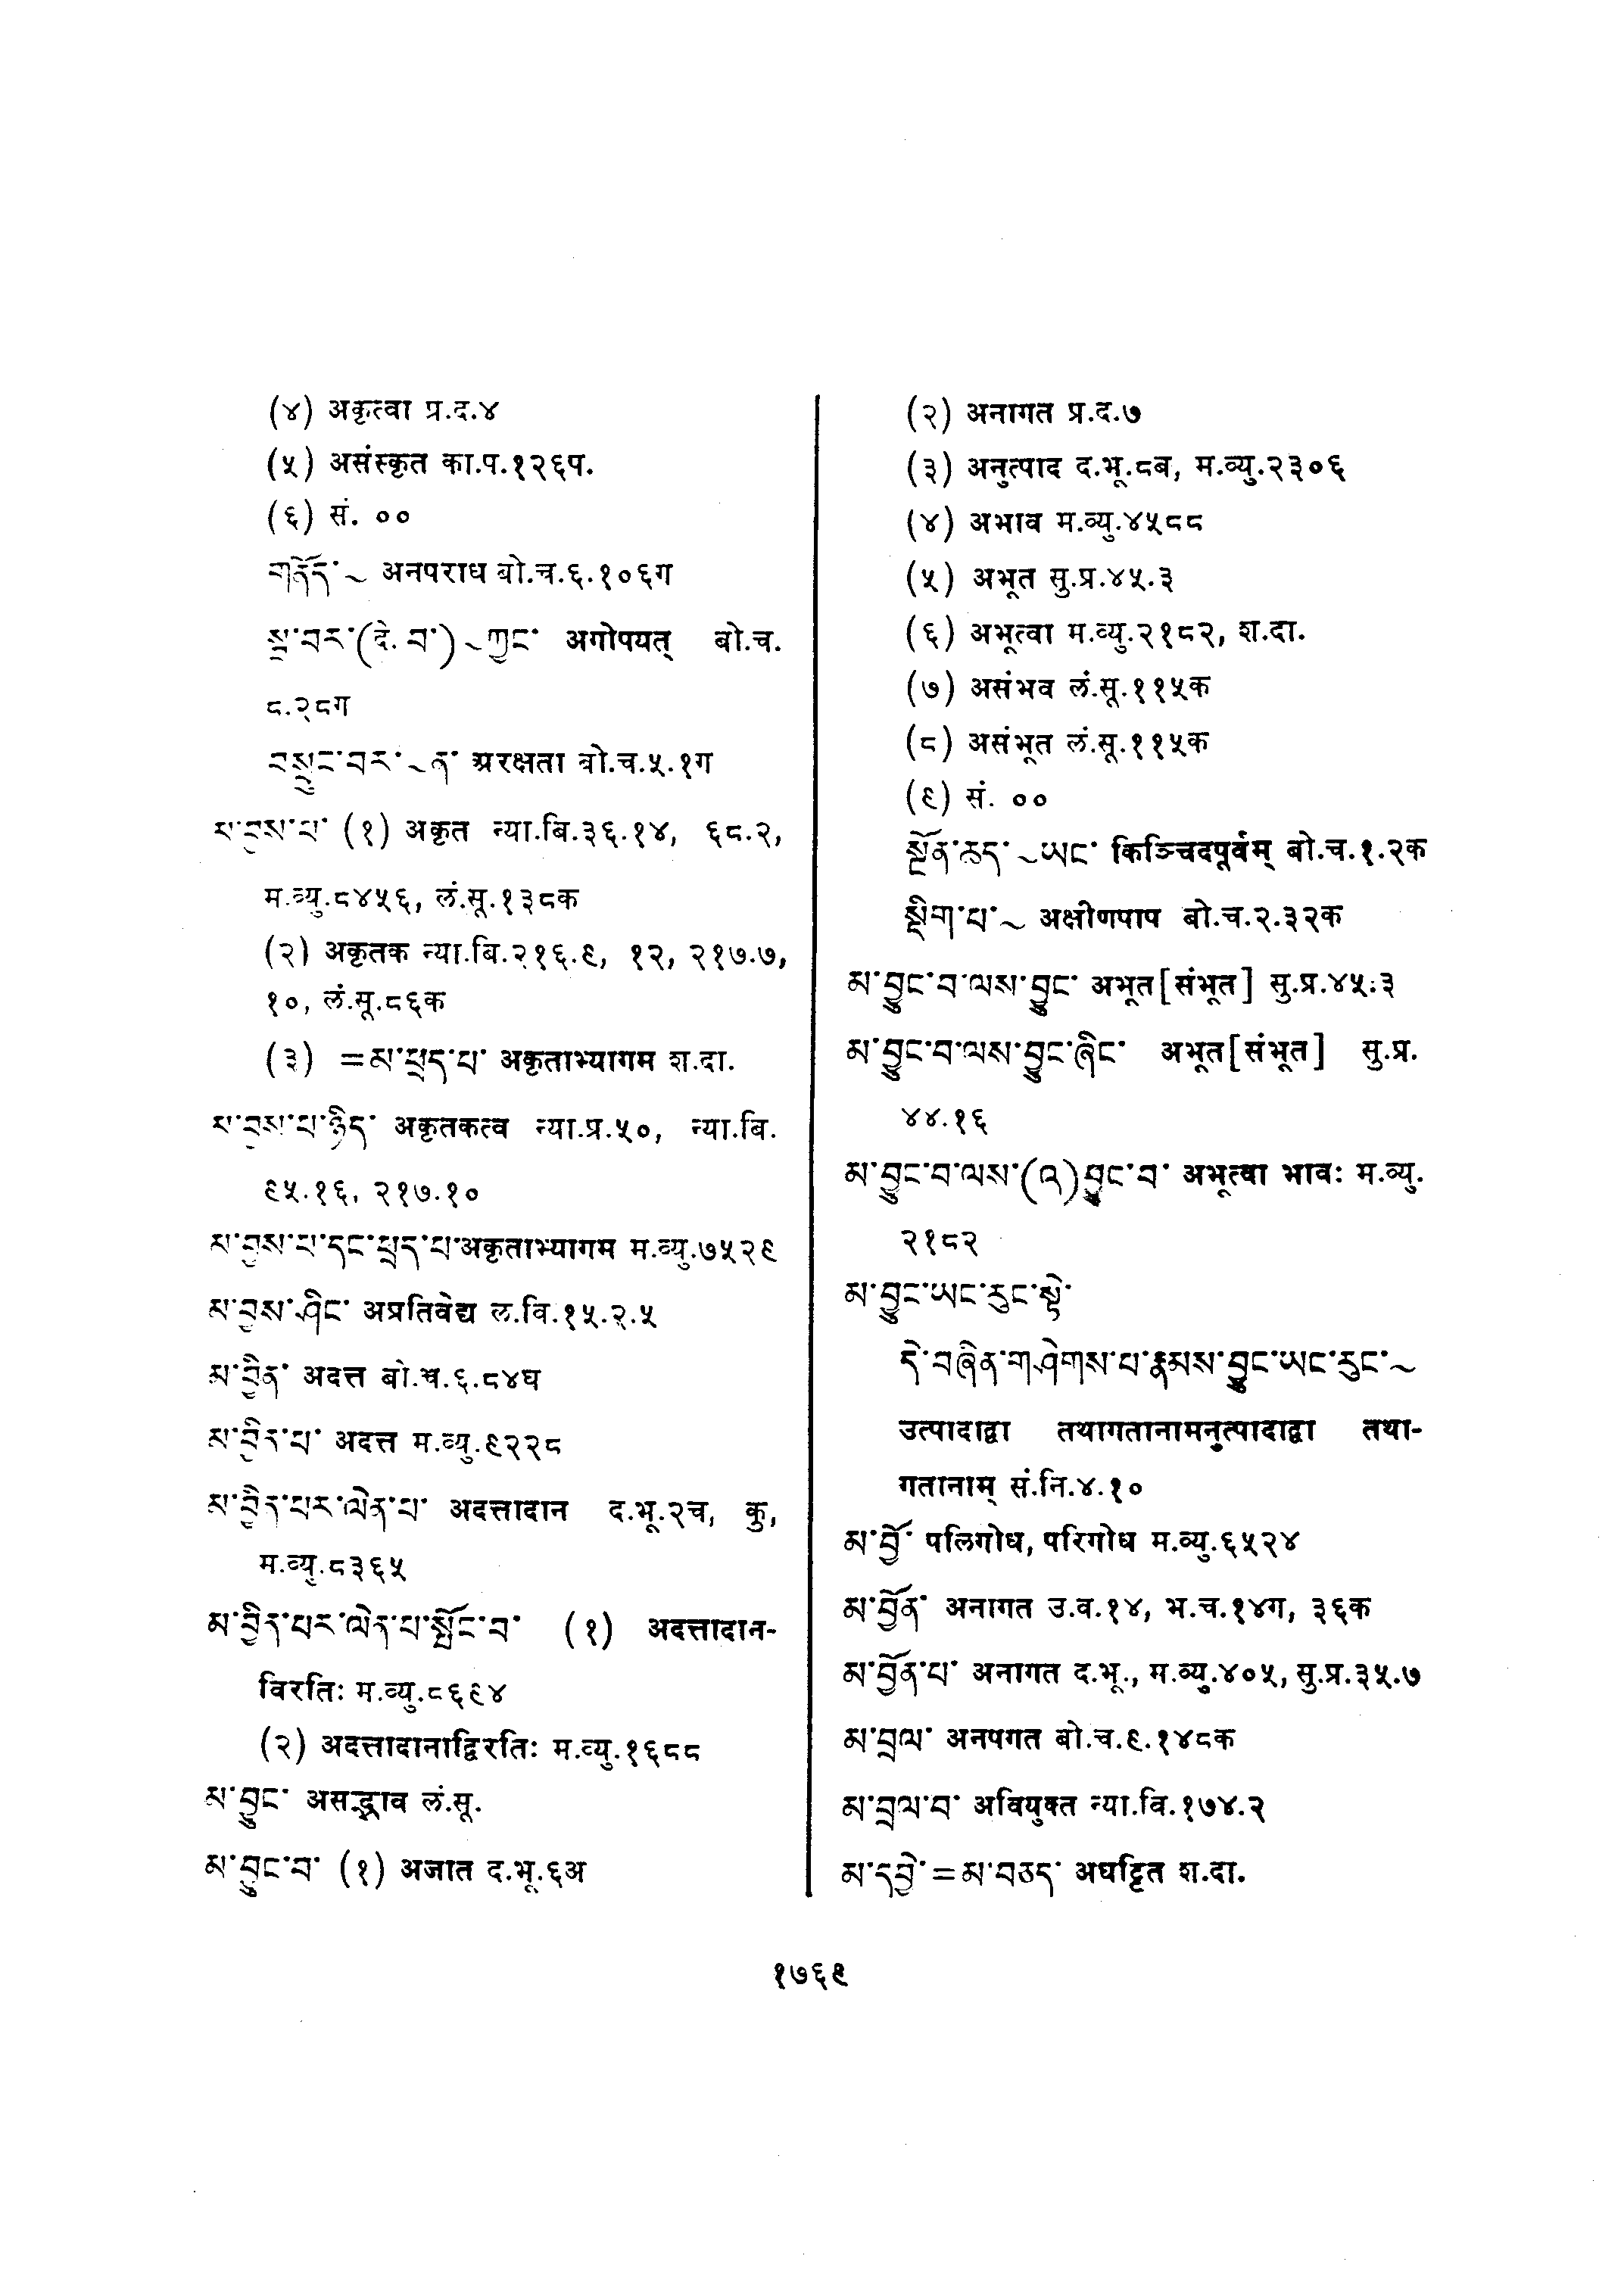 (४) अकृत्वा प्र.द.४
(५) असंस्कृत का.प.१२६प.
(६) सं. ००
གནོད་~ अनपराध बो.च.६.१०६ग
སྦ་བར་(དེ.བ་)~ཀྱང་ अगोपयत् बो.च.
८.२८ग
བསྲུང་བར་~ན་ अरक्षता बो.च.५.१ग
མ་བྱས་པ་ (१) अकृत न्या.बि.३६.१४, ६८.२,
म.व्यु.८४५६, लं.सू.१३८क
(२) अकृतक न्या.बि.२१६.९, १२, २१७.७,
१०, लं.सू.८६क
(३) =མ་ཕྲད་པ་ अकृताभ्यागम श.दा.
མ་བྱས་པ་ཉིད་ अकृतकत्व न्या.प्र.५०, न्या.बि.
९५.१६, २१७.१०
མ་བྱས་པ་དང་ཕྲད་པ་अकृताभ्यागम म.व्यु.७५२९
མ་བྱས་ཤིང་ अप्रतिवेद्य ल.वि.१५.२.५
མ་བྱིན་ अदत्त बो.च.६.८४घ
མ་བྱིན་པ་ अदत्त म.व्यु.९२२८
མ་བྱིན་པར་ལེན་པ་ अदत्तादान द.भू.२च, कु,
म.व्यु.८३६५
མ་བྱིན་པར་ལེན་པ་སྤོང་བ་ (१) अदत्तादान-
विरतिः म.व्यु.८६९४
(२) अदत्तादानाद्विरतिः म.व्यु.१६८८
མ་བྱུང་ असद्भाव लं.सू.
མ་བྱུང་བ་ (१) अजात द.भू.६अ
(२) अनागत प्र.द.७
(३) अनुत्पाद द.भू.८ब, म.व्यु.२३०६
(४) अभाव म.व्यु.४५८८
(५) अभूत सु.प्र.४५.३
(६) अभूत्वा म.व्यु.२१८२, श.दा.
(७) असंभव लं.सू.११५क
(८) असंभूत लं.सू.११५क
(९) सं. ००
སྔོན་ཆད་~ཡང་ किञ्चिदपूर्वम् बो.च.१.२क
སྡིག་པ་~ अक्षीणपाप बो.च.२.३२क
མ་བྱུང་བ་ལས་བྱུང་ अभूत[संभूत] सु.प्र.४५.३
མ་བྱུང་བ་ལས་བྱུང་ཞིང་ अभूत[संभूत] सु.प्र.
४४.१६
མ་བྱུང་བ་ལས་(འ)བྱུང་བ་ अभूत्वा भावः म.व्यु.
२१८२
མ་བྱུང་ཡང་རུང་སྟེ་
དེ་བཞིན་གཤེགས་པ་རྣམས་བྱུང་ཡང་རུང་~
उत्पादाद्वा तथागतानामनुत्पादाद्वा तथा-
गतानाम् सं.नि.४.१०
མ་བྱོ་ पलिगोध, परिगोध म.व्यु.६५२४
མ་བྱོན་ अनागत उ.व.१४, भ.च.१४ग, ३६क
མ་བྱོན་པ་ अनागत द.भू., म.व्यु.४०५, सु.प्र.३५.७
མ་བྲལ་ अनपगत बो.च.९.१४८क
མ་བྲལ་བ་ अवियुक्त न्या.वि.१७४.२
མ་དབྱེ་=མ་བཅད་ अघट्टित श.दा.
१७६९